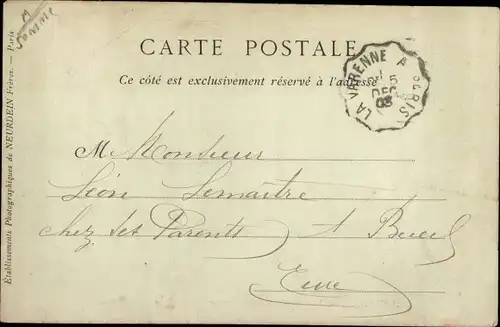 M
Somme
CARTE POSTALE
Ce côté est exclusivement réservé à l'adresse
LA VARENNE A PARIS
5
DEC
03
M Monsieur
Léon Lemaître
chez ses Parents à Bueil
Eure
Établissements Photographiques de NEURDEIN Frères. — Paris